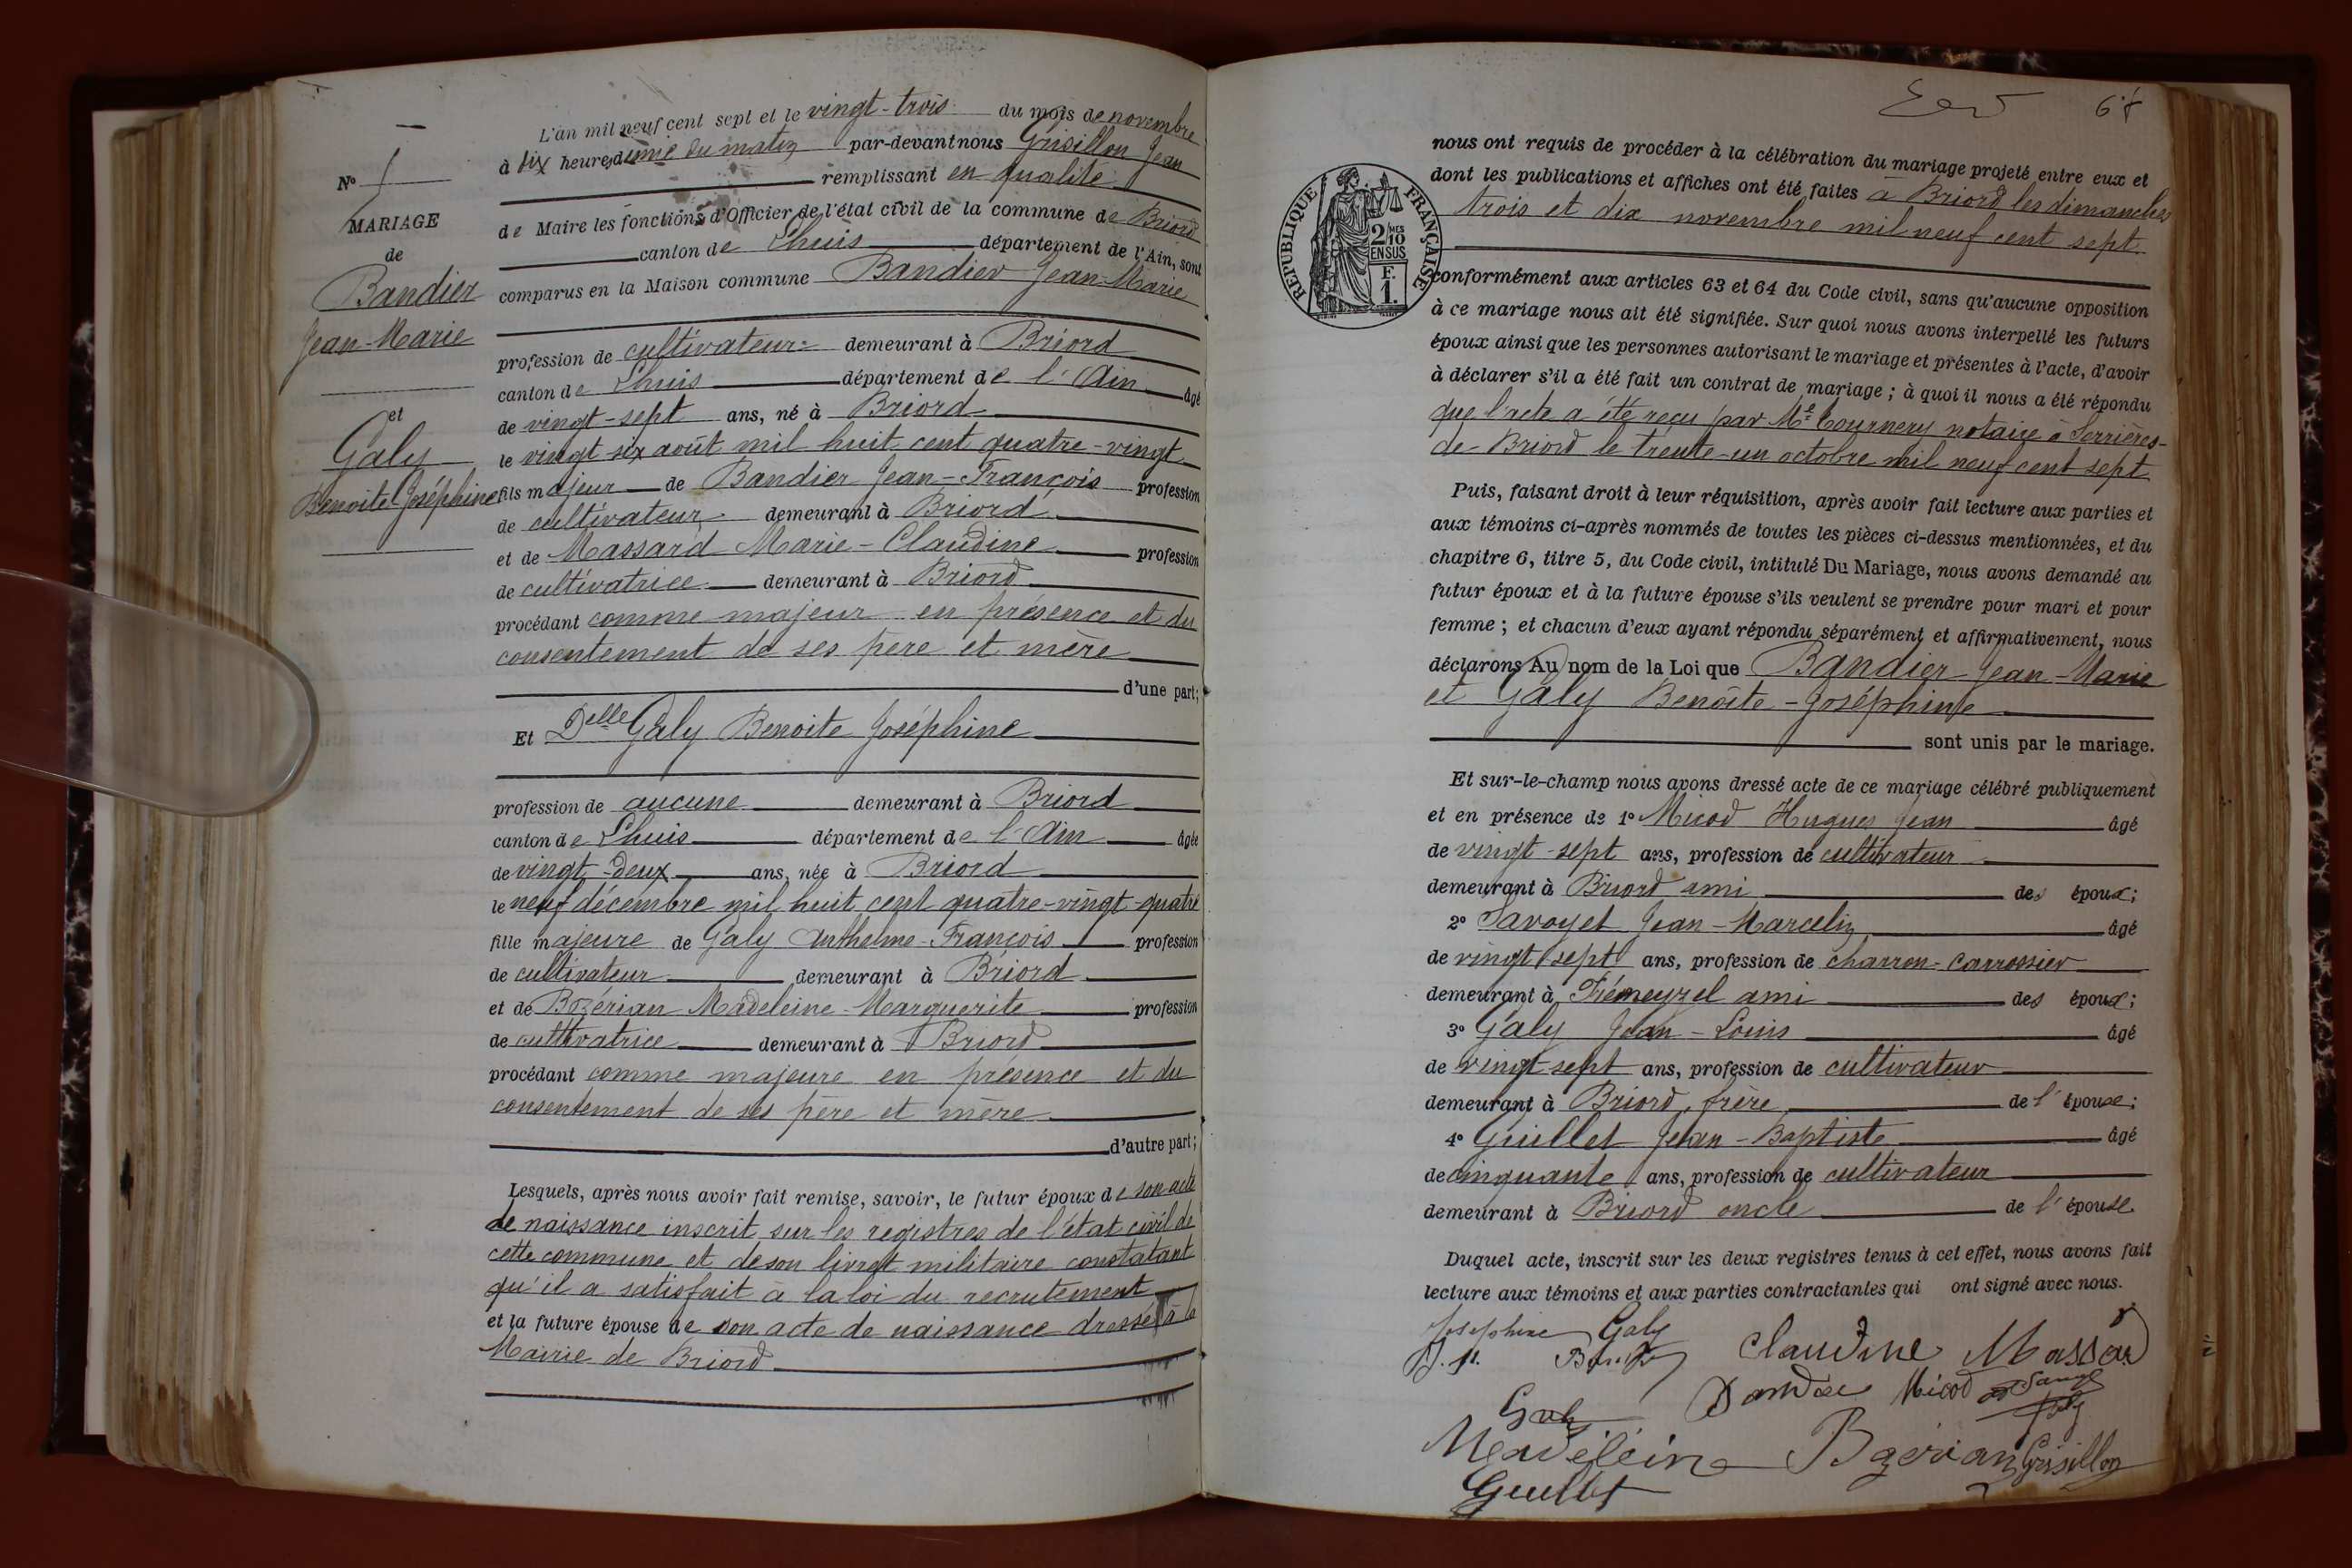 L'an mil neuf cent sept et le vingt-trois du mois de novembre
à dix heures demie du matin par-devant nous Grisillon Jean
remplissant en qualité
de Maire les fonctions d'Officier de l'état civil de la commune de Briord
canton de Lhuis département de l'Ain, sont
comparus en la Maison commune Bandier Jean-Marie
profession de cultivateur demeurant à Briord
canton de Lhuis département de l'Ain âgé
de vingt-sept ans, né à Briord
le vingt-six août mil huit cent quatre-vingt
fils majeur de Bandier Jean-François profession
de cultivateur demeurant à Briord
et de Massard Marie-Claudine profession
de cultivatrice demeurant à Briord
procédant comme majeur en présence et du
consentement de ses père et mère
d'une part;
Et Delle Galy Benoite Joséphine
profession de aucune demeurant à Briord
canton de Lhuis département de l'Ain âgée
de vingt-deux ans, née à Briord
le neuf décembre mil huit cent quatre-vingt-quatre
fille majeure de Galy Anthelme-François profession
de cultivateur demeurant à Briord
et de Bozérian Madeleine-Marguerite profession
de cultivatrice demeurant à Briord
procédant comme majeure en présence et du
consentement de ses père et mère
d'autre part;
Lesquels, après nous avoir fait remise, savoir, le futur époux de son acte
de naissance inscrit sur les registres de l'état civil de
cette commune et de son livret militaire constatant
qu'il a satisfait à la loi du recrutement
et la future épouse de son acte de naissance dressé à la
Mairie de Briord
No
MARIAGE
de
Bandier
Jean-Marie
et
Galy
Benoite-Joséphine
nous ont requis de procéder à la célébration du mariage projeté entre eux et
dont les publications et affiches ont été faites à Briord les dimanches
trois et dix novembre mil neuf cent sept
conformément aux articles 63 et 64 du Code civil, sans qu'aucune opposition
à ce mariage nous ait été signifiée. Sur quoi nous avons interpellé les futurs
époux ainsi que les personnes autorisant le mariage et présentes à l'acte, d'avoir
à déclarer s'il a été fait un contrat de mariage; à quoi il nous a été répondu
que l'acte a été reçu par Me Cournery notaire à Serrières-
de-Briord le trente-un octobre mil neuf cent sept
Puis, faisant droit à leur réquisition, après avoir fait lecture aux parties et
aux témoins ci-après nommés de toutes les pièces ci-dessus mentionnées, et du
chapitre 6, titre 5, du Code civil, intitulé Du Mariage, nous avons demandé au
futur époux et à la future épouse s'ils veulent se prendre pour mari et pour
femme; et chacun d'eux ayant répondu séparément et affirmativement, nous
déclarons Au nom de la Loi que Bandier Jean-Marie
et Galy Benoite-Joséphine
sont unis par le mariage.
Et sur-le-champ nous avons dressé acte de ce mariage célébré publiquement
et en présence de 1o Micod Hugues Jean âgé
de vingt-sept ans, profession de cultivateur
demeurant à Briord ami des époux;
2o Savoyet Jean-Marcelin âgé
de vingt sept ans, profession de charron-carrossier
demeurant à ami des époux;
3o Galy Jean-Louis âgé
de vingt-sept ans, profession de cultivateur
demeurant à Briord, frère de l'épouse;
4o Guillet Jean-Baptiste âgé
de cinquante ans, profession de cultivateur
demeurant à Briord oncle de l'épouse
Duquel acte, inscrit sur les deux registres tenus à cet effet, nous avons fait
lecture aux témoins et aux parties contractantes qui ont signé avec nous.
Joséphine Galy
Claudine Massard
Micod
Galy
Madéleine Bozerian Grisillon
Guillet
RÉPUBLIQUE FRANÇAISE
2/10 MES
EN SUS
F.
1.